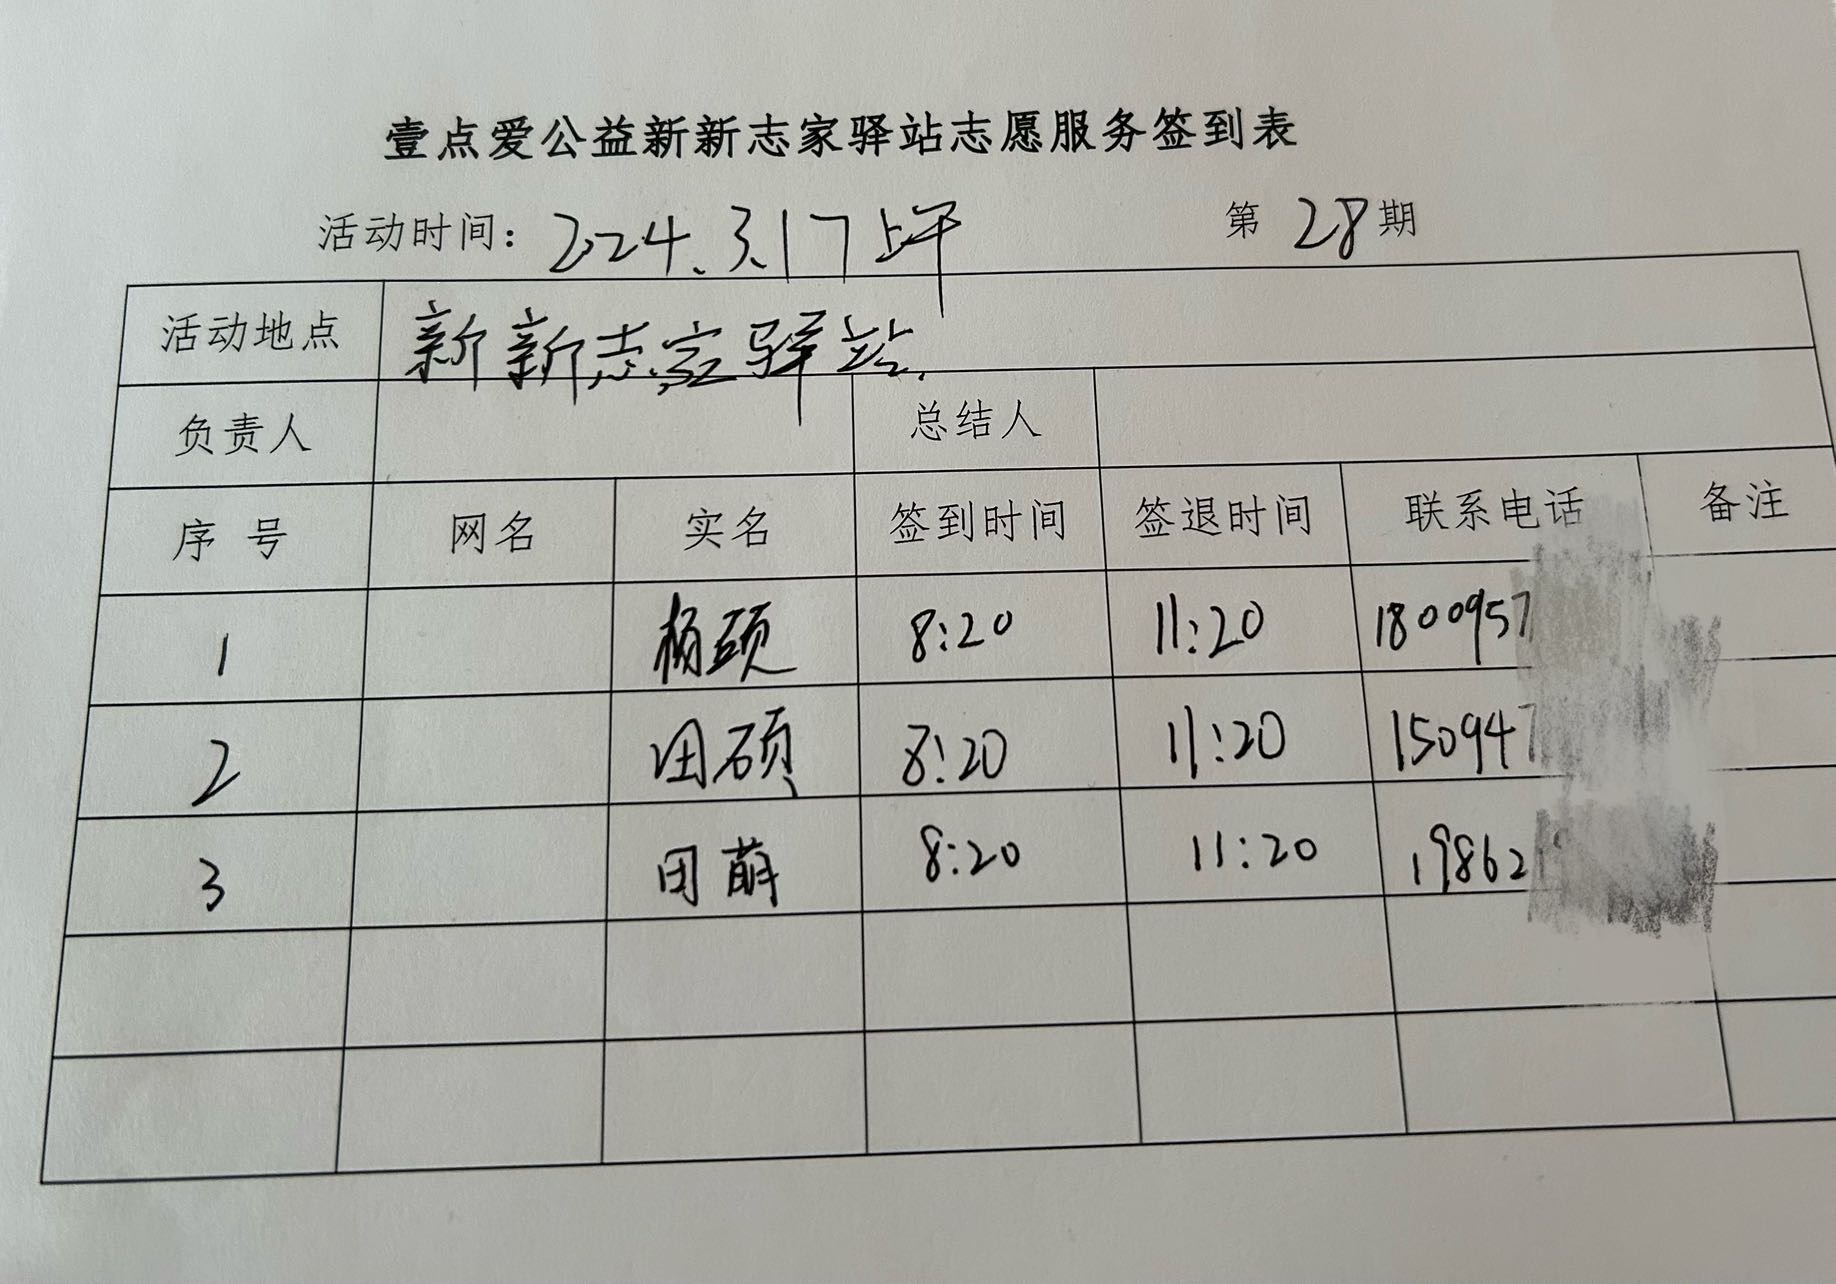 壹点爱公益新新志家驿站志愿服务签到表
活动时间：2024.3.17上午 第28期
活动地点 新新志家驿站.
负责人 总结人
序号 网名 实名 签到时间 签退时间 联系电话 备注
1 杨硕 8:20 11:20 1800957
2 田硕 8:20 11:20 150947
3 田萌 8:20 11:20 19862